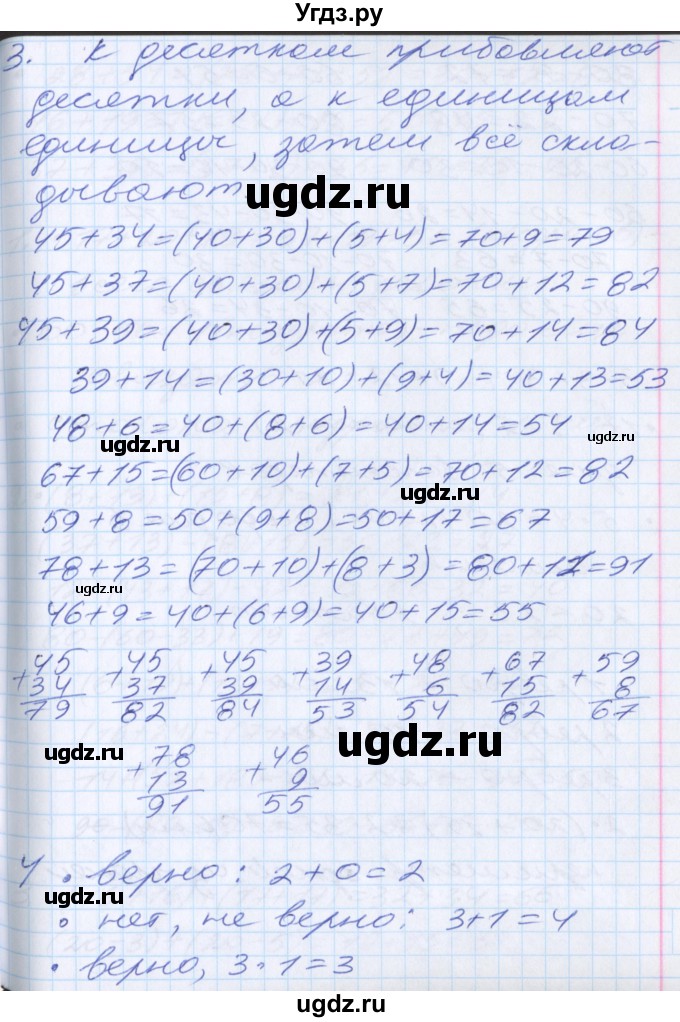 Угдз.ру
3. К десяткам прибавляют
десятки, а к единицам
единицы, затем всё скла-
дывают
ugdz.ru
45+34=(40+30)+(5+4)=70+9=79
45+37=(40+30)+(5+7)=70+12=82
45+39=(40+30)+(5+9)=70+14=84
39+14=(30+10)+(9+4)=40+13=53
48+6=40+(8+6)=40+14=54
ugdz.ru
ugdz.ru
67+15=(60+10)+(7+5)=70+12=82
ugdz.ru
59+8=50+(9+8)=50+17=67
78+13=(70+10)+(8+3)=80+11=91
ugdz.ru
46+9=40+(6+9)=40+15=55
+45 +45 +45 +39 +48 +67 +59
34 37 39 14 6 15 8
79 82 84 53 54 82 67
ugdz.ru
+78 +46
13 9
91 55
4 • верно: 2+0=2
ugdz.ru
• нет, не верно: 3+1=4
• верно, 3·1=3
ugdz.ru